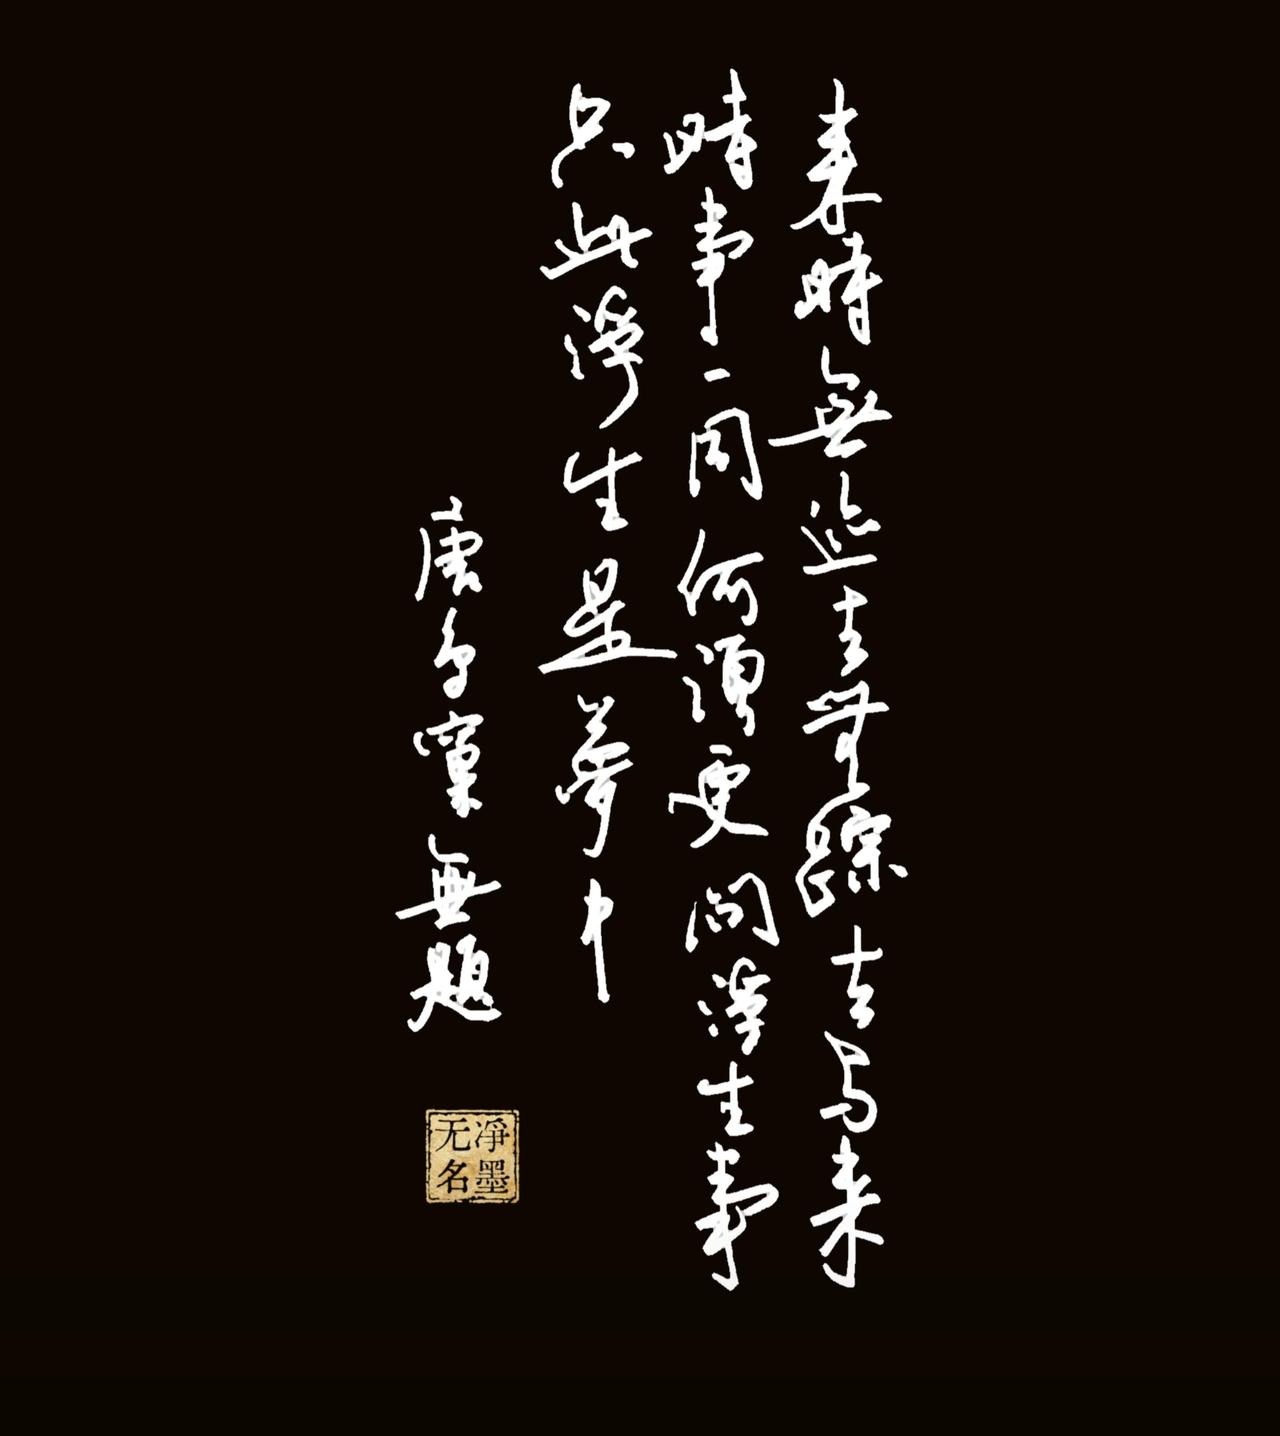 来時無迹去無踪去与来
時事一同何須更問浮生事
只此浮生是夢中
唐鸟窠無題
净墨
无名